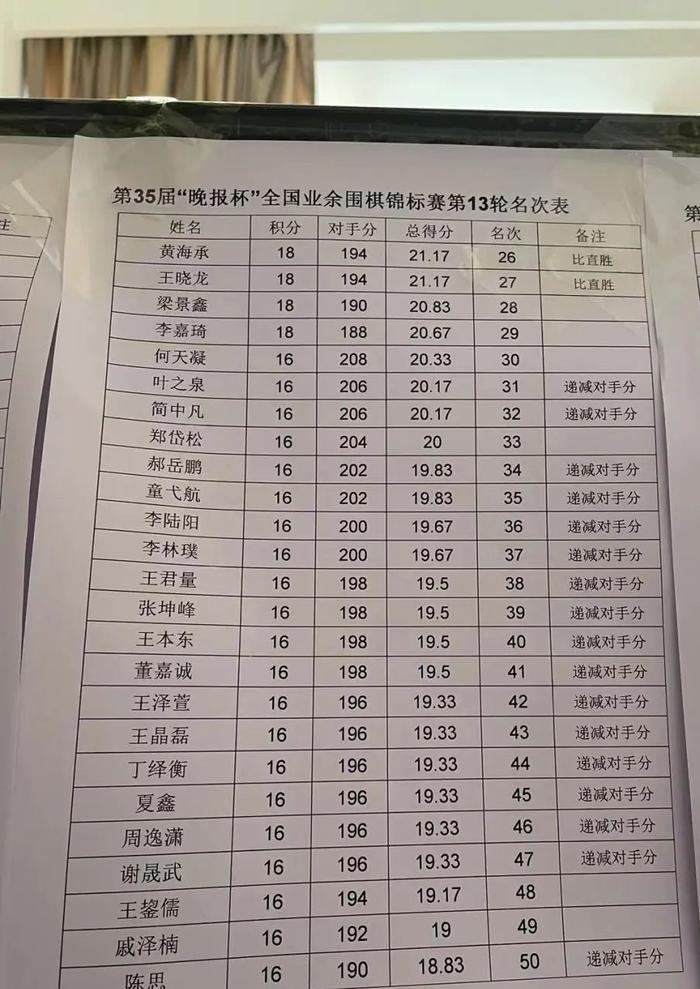 第35届“晚报杯”全国业余围棋锦标赛第13轮名次表
姓名 积分 对手分 总得分 名次 备注
黄海承 18 194 21.17 26 比直胜
王晓龙 18 194 21.17 27 比直胜
梁景鑫 18 190 20.83 28
李嘉琦 18 188 20.67 29
何天凝 16 208 20.33 30
叶之泉 16 206 20.17 31 递减对手分
简中凡 16 206 20.17 32 递减对手分
郑岱松 16 204 20 33
郝岳鹏 16 202 19.83 34 递减对手分
童弋航 16 202 19.83 35 递减对手分
李陆阳 16 200 19.67 36 递减对手分
李林璞 16 200 19.67 37 递减对手分
王君量 16 198 19.5 38 递减对手分
张坤峰 16 198 19.5 39 递减对手分
王本东 16 198 19.5 40 递减对手分
董嘉诚 16 198 19.5 41 递减对手分
王泽萱 16 196 19.33 42 递减对手分
王晶磊 16 196 19.33 43 递减对手分
丁绎衡 16 196 19.33 44 递减对手分
夏鑫 16 196 19.33 45 递减对手分
周逸潇 16 196 19.33 46 递减对手分
谢晟武 16 196 19.33 47 递减对手分
王鋆儒 16 194 19.17 48
戚泽楠 16 192 19 49
陈思 16 190 18.83 50 递减对手分
注
第